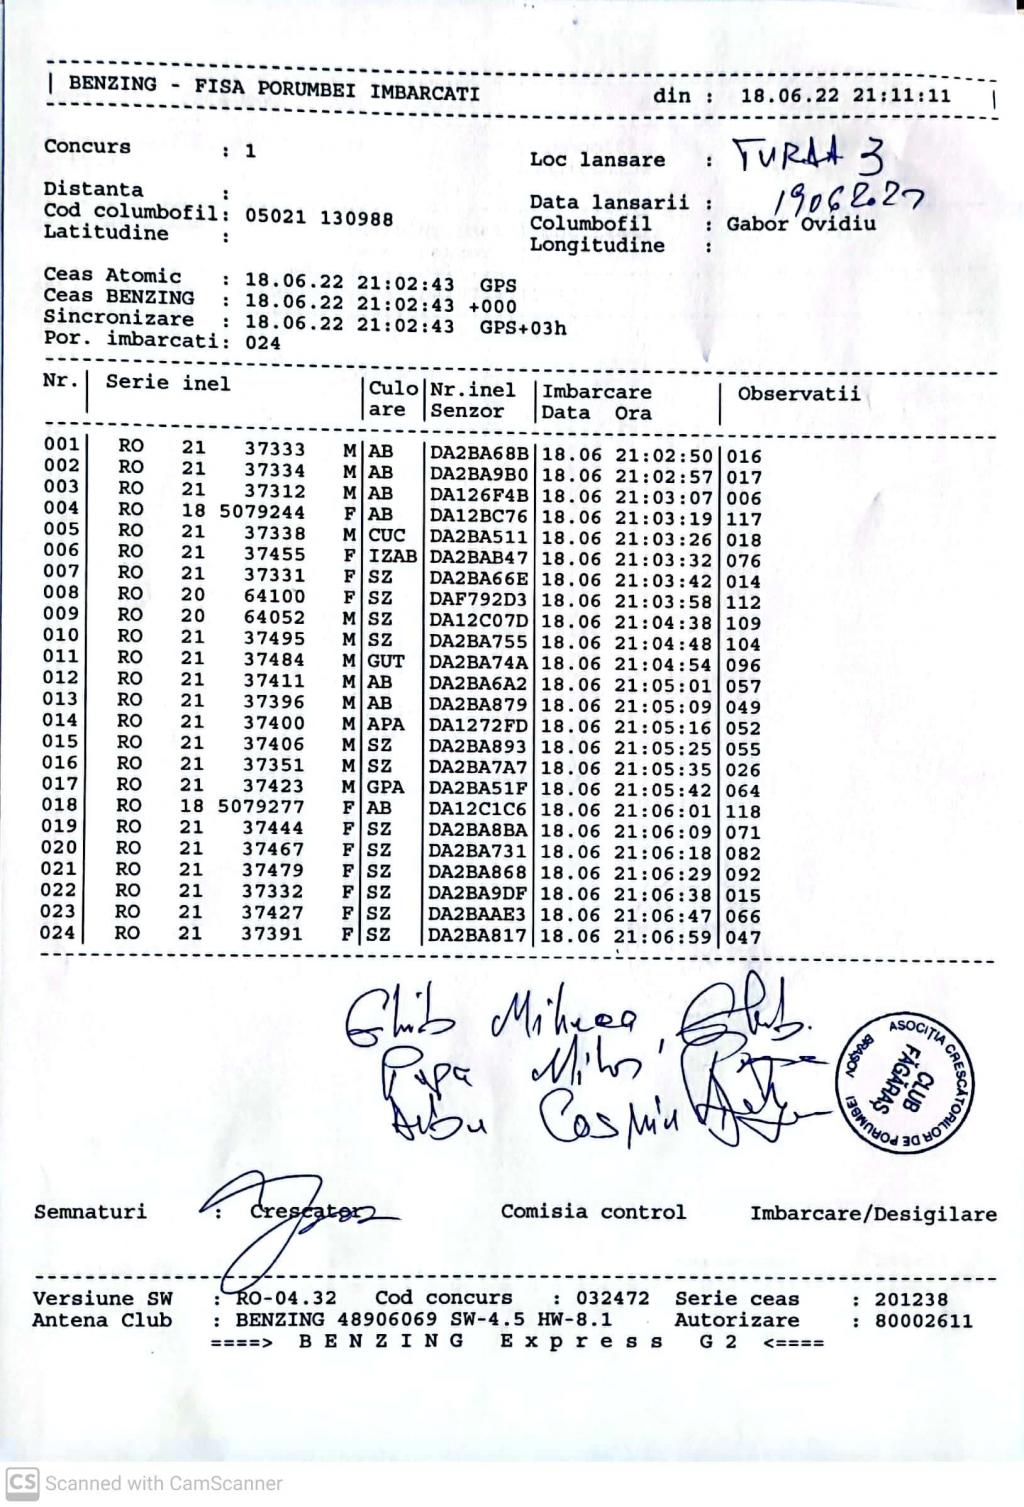 BENZING - FISA PORUMBEI IMBARCATI din : 18.06.22 21:11:11
Concurs : 1 Loc lansare : TURAA 3
Distanta : Data lansarii :
Cod columbofil: 05021 130988 Columbofil : Gabor Ovidiu
Latitudine : Longitudine :
Ceas Atomic : 18.06.22 21:02:43 GPS
Ceas BENZING : 18.06.22 21:02:43 +000
Sincronizare : 18.06.22 21:02:43 GPS+03h
Por. imbarcati: 024
Nr. Serie inel Culo Nr.inel Imbarcare Observatii
are Senzor Data Ora
001 RO 21 37333 M AB DA2BA68B 18.06 21:02:50 016
002 RO 21 37334 M AB DA2BA9B0 18.06 21:02:57 017
003 RO 21 37312 M AB DA126F4B 18.06 21:03:07 006
004 RO 18 5079244 F AB DA12BC76 18.06 21:03:19 117
005 RO 21 37338 M CUC DA2BA511 18.06 21:03:26 018
006 RO 21 37455 F IZAB DA2BAB47 18.06 21:03:32 076
007 RO 21 37331 F SZ DA2BA66E 18.06 21:03:42 014
008 RO 20 64100 F SZ DAF792D3 18.06 21:03:58 112
009 RO 20 64052 M SZ DA12C07D 18.06 21:04:38 109
010 RO 21 37495 M SZ DA2BA755 18.06 21:04:48 104
011 RO 21 37484 M GUT DA2BA74A 18.06 21:04:54 096
012 RO 21 37411 M AB DA2BA6A2 18.06 21:05:01 057
013 RO 21 37396 M AB DA2BA879 18.06 21:05:09 049
014 RO 21 37400 M APA DA1272FD 18.06 21:05:16 052
015 RO 21 37406 M SZ DA2BA893 18.06 21:05:25 055
016 RO 21 37351 M SZ DA2BA7A7 18.06 21:05:35 026
017 RO 21 37423 M GPA DA2BA51F 18.06 21:05:42 064
018 RO 18 5079277 F AB DA12C1C6 18.06 21:06:01 118
019 RO 21 37444 F SZ DA2BA8BA 18.06 21:06:09 071
020 RO 21 37467 F SZ DA2BA731 18.06 21:06:18 082
021 RO 21 37479 F SZ DA2BA868 18.06 21:06:29 092
022 RO 21 37332 F SZ DA2BA9DF 18.06 21:06:38 015
023 RO 21 37427 F SZ DA2BAAE3 18.06 21:06:47 066
024 RO 21 37391 F SZ DA2BA817 18.06 21:06:59 047
Ghib Mihaea
Popa
Arbu Cosmin
ASOCIȚIA CRESCĂTORILOR DE PORUMBEI BRAȘOV
CLUB
FĂGĂRAȘ
Semnaturi : Crescator Comisia control Imbarcare/Desigilare
Versiune SW : RO-04.32 Cod concurs : 032472 Serie ceas : 201238
Antena Club : BENZING 48906069 SW-4.5 HW-8.1 Autorizare : 80002611
====> B E N Z I N G E x p r e s s G 2 <====
CS Scanned with CamScanner